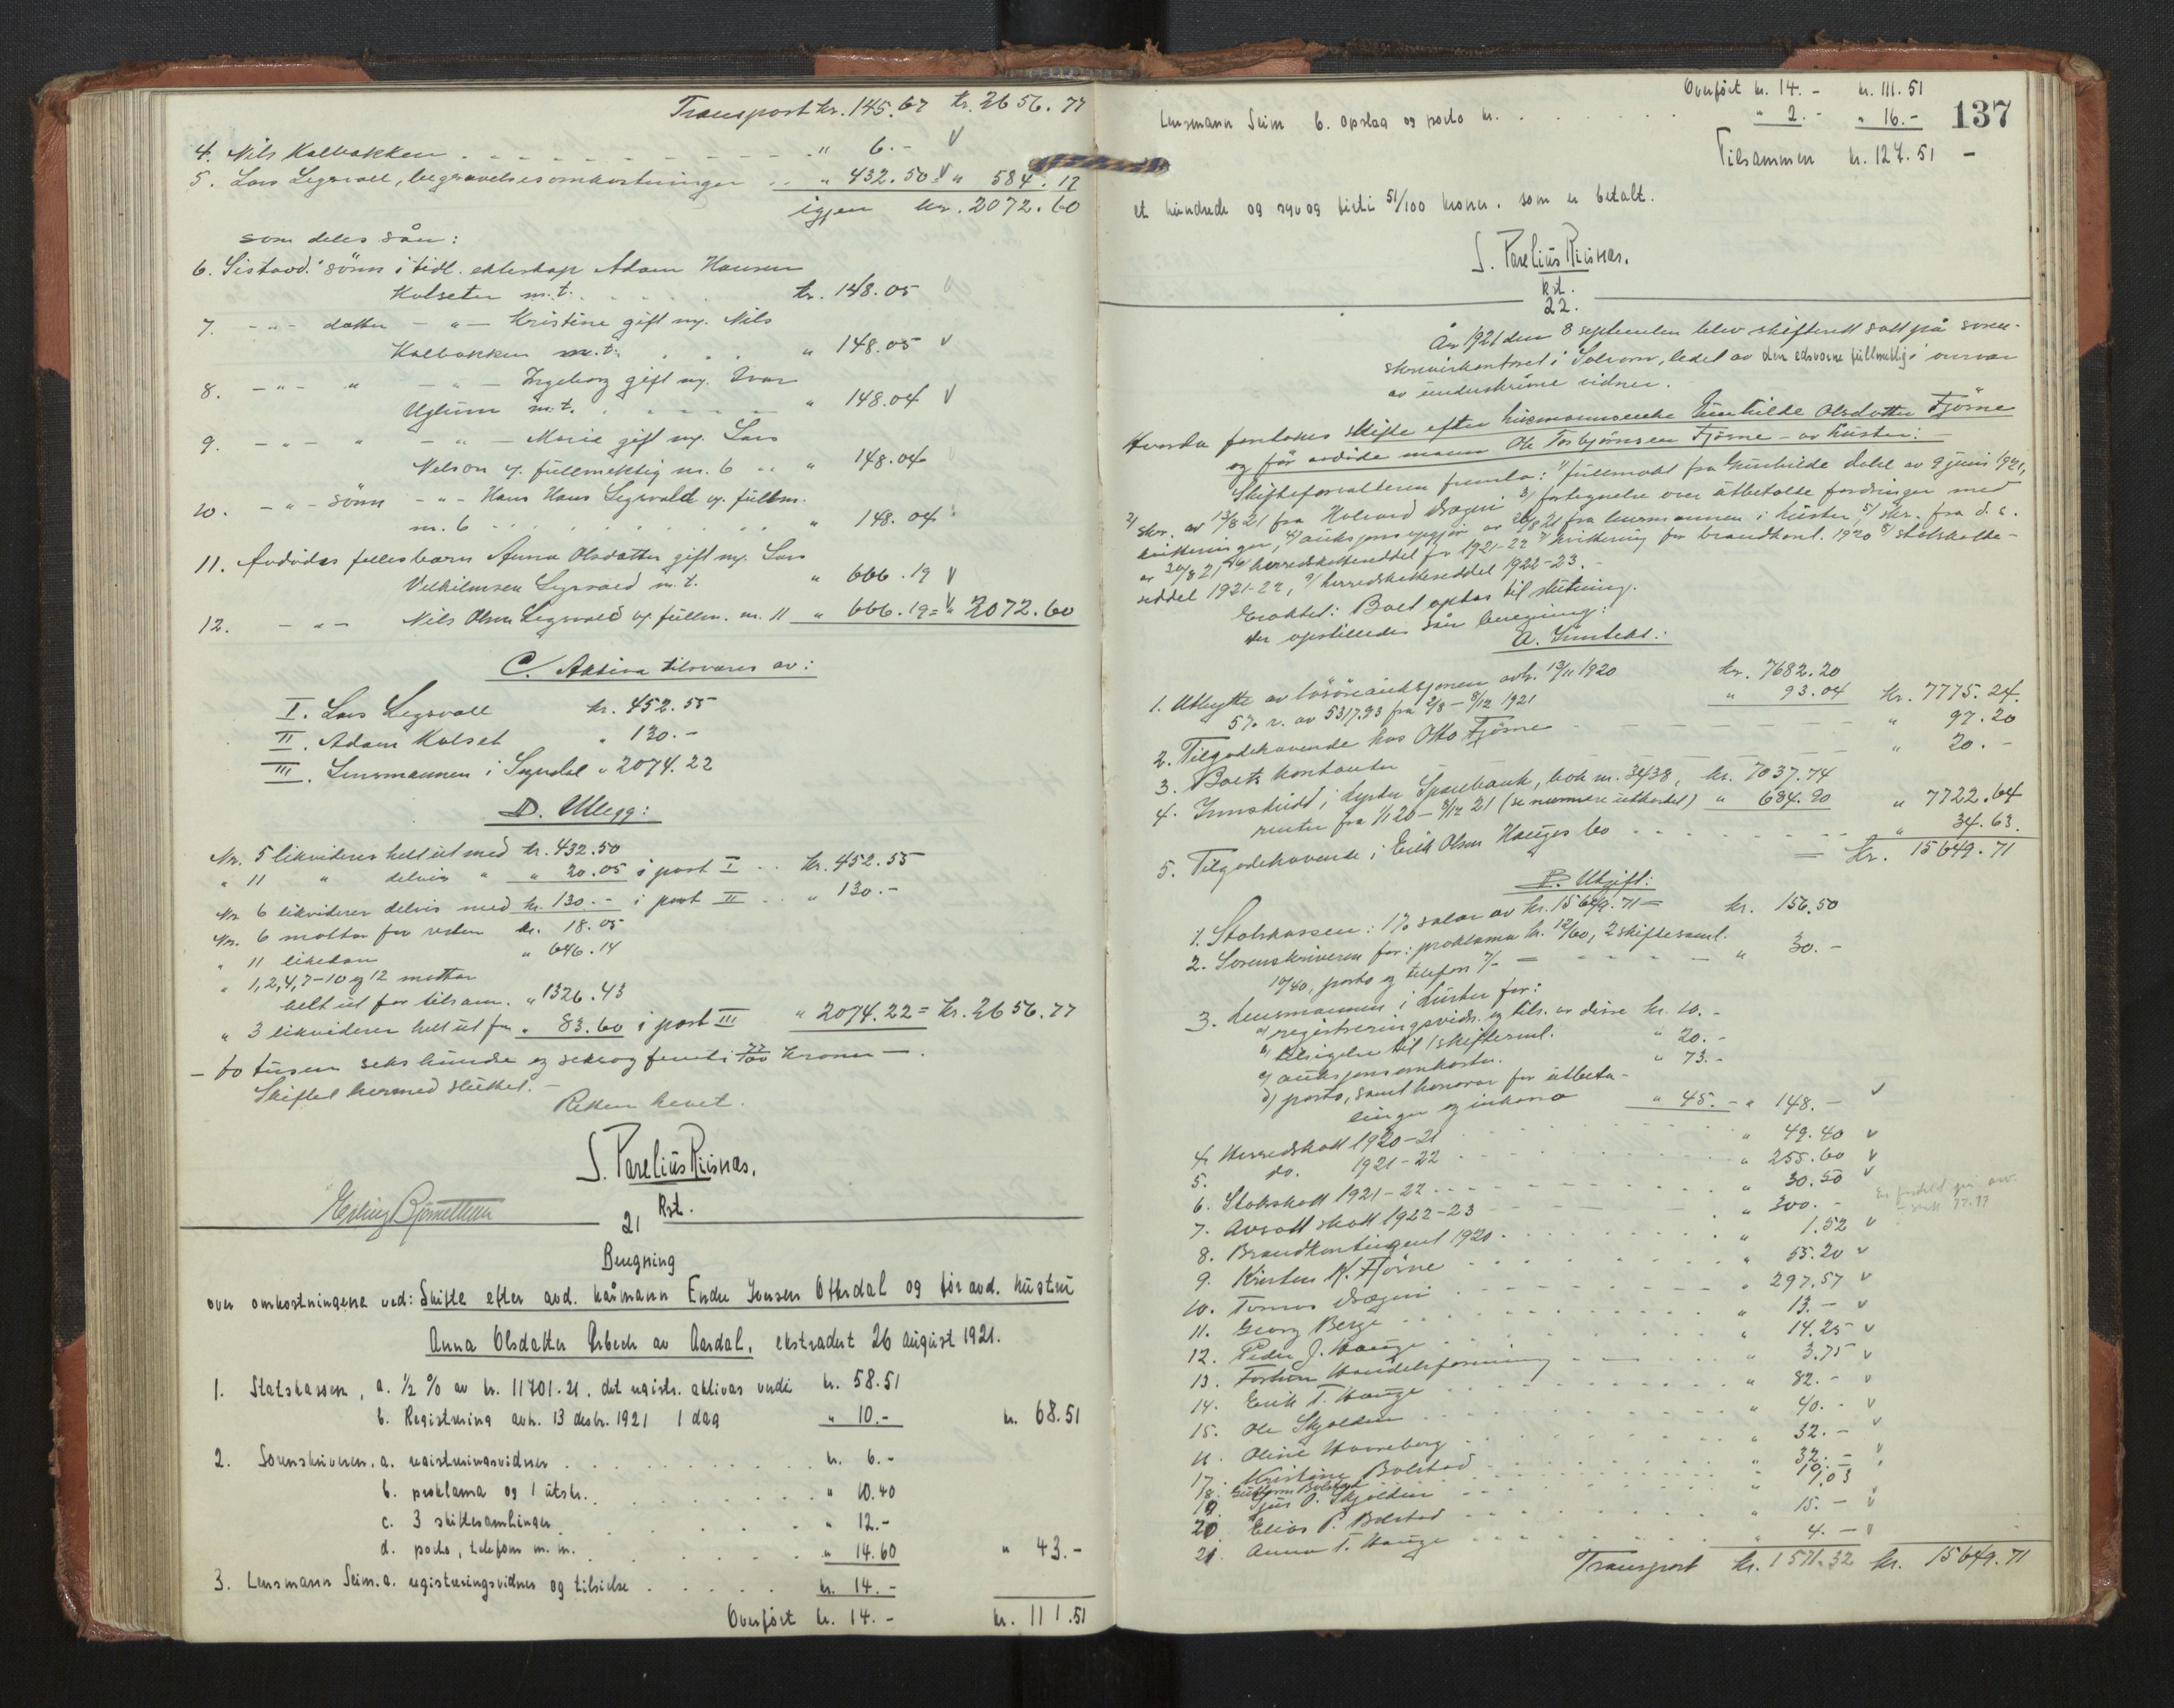 Transport kr. 145.67 kr. 2656.77
4. Nils Kalbakken . . . " 6.-
5. Lars Legrvall, begravelsesomkostninger . . " 432.50 = " 584.17
igjen kr. 2072.60
som deles sån:
6. Sistavd.' sönn i tidl. ekteskap Adam Hansen
Kolseter m.t. . . . . kr. 148.05
7. -"- datter -"- Kristine gift my. Nils
Kalbakken m.t. . . . " 148.05
8. -"- " -"- Ingeborg gift my. Ivar
Uglum m.t. . . . . " 148.04
9. -"- " -"- Marie gift my. Lars
Nelson y. fullmektig nr. 6 . . " 148.04
10. -"- sönn -"- Hans Hans Legrvald y. fullm.
nr. 6 . . . . . " 148.04
11. Avdödes fellesbarn Anna Olsdatter gift my. Lars
Vilhelmsen Legrvald m.t. " 666.19
12. -"- Nils Olsen Legrvald y. fullm. nr. 11 " 666.19 = " 2072.60
C. Aktiva tilsvares av:
I. Lars Legrvall kr. 452.55
II. Adam Kolset " 130.-
III. Lensmannen i Sogndal " 2074.22
D. Utlegg:
Nr. 5 likvideres helt ut med kr. 432.50
" 11 " delvis " " 20.05 i post I . . kr. 452.55
Nr. 6 likvideres delvis med kr. 130.- i post II . . " 130.-
Nr. 6 mottar for resten kr. 18.05
" 11 likedan " 646.14
" 1,2,4,7-10 og 12 mottar
helt ut for tilsam. " 1326.43
" 3 likviderer helt ut for " 83.60 i post III " 2074.22 = kr. 2656.77
- to tusen seks hundre og seks og femti 77/100 kroner -.
Skiftet hermed sluttet.-
Retten hevet.
S. Parelius Riisnæs.
Kst.
Erling Bjørnethun
21
Beregning
over omkostningene ved: Skifte efter avd. kårmann Endre Jensen Offerdal og før avd. hustru
Anna Olsdatter Asbech av Aardal, ekstradert 26 august 1921.
1. Statskassen, a. 1/2 % av kr. 11701.21, det registr. aktivas verdi kr. 58.51
b. Registrering avh. 13 desbr. 1921 1 dag " 10.- kr. 68.51
2. Sorenskriveren. a. registreringsvidner . . . kr. 6.-
b. proklama og 1 utskr. . . . " 10.40
c. 3 skiftesamlinger . . . " 12.-
d. porto, telefon m. m. . . . " 14.60 " 43.-
3. Lensmann Seim. a. registreringsvidner og tilsidse . . . kr. 14.-
Overført kr. 14.- kr. 111.51
Overført kr. 14.- kr. 111.51
137
Lensmann Seim b. opslag og porto kr. . . . " 2.- " 16.-
Tilsammen kr. 127.51 -
et hundrede og syv og tieti 51/100 kroner. som er betalt.
S. Parelius Riisnæs.
Kst.
22.
År 1921 den 8 september blev skifterett satt på soren-
skriverkontoret i Solvorn, ledet av den edsvorne fullmektig i nærvær
av underskrevne vidner.
Hvorda foretokes skifte efter husmannsenke Gunhilde Olsdatter Fjørne
og før avdøde mann Ole Torbjørnsen Fjørne - av Luster:
Skifteforvalteren fremla: 1/ fullmakt fra Gunhilde datert av 9 juni 1921,
2/ skr. av 13/8 21 fra Halvard Drægni 3/ fortegnelse over utbetalte fordringer med
kvitteringer, 4/ auksjonsopgjør av 20/8 21 fra lensmannen i Luster, 5/ skr. fra d. s.
av 30/8 21, 6/ herredskatteseddel for 1921-22 7/ kvittering for brandkont. 1920 8/ statskatte-
seddel 1921-22, 9/ herredskatteseddel 1922-23.-
Eraktet: Boet optas til slutning.
der opstilledes sån beregning:
A. Inntekt:
1. Utbytte av løsøreauksjonen avh. 13/11 1920 kr. 7682.20
5% r. av 5317.93 fra 2/8 - 8/12 1921 " 93.04 kr. 7775.24
2. Tilgodehavende hos Otto Fjørne - - - " 97.20
3. Boets kontanter - - - " 20.-
4. Innskudd i Lyster Sparebank, bok nr. 3438, kr. 7037.74
renter fra 1/1 20 - 8/12 21 (se nærmere utkastet) " 684.90 " 7722.64
5. Tilgodehavende i Erik Olsen Hauges bo . . . " 34.63.
= kr. 15649.71
B. Utgift:
1. Statskassen: 1% salær av kr. 15649.71 = kr. 156.50
2. Sorenskriveren for: proklama kr. 12/60, 2 skiftesaml.
10/40, porto og telefon 7/- = - - - " 30.-
3. Lensmannen i Luster for:
a) registreringsvidn. og tils. av disse kr. 10.-
b) tilsigelse til 1 skiftesaml. " 20.-
c) auksjonsomkostn. " 73.-
d) porto, samt honorar for utbeta-
linger og inkasso " 45.- " 148.-
4. Herredskatt 1920-21 . . . " 49.40
5. do. 1921-22 . . . " 255.60
6. Statsskatt 1921-22 . . . " 30.50
7. Avsatt skatt 1922-23 . . . " 300.-
8. Brandkontingent 1920 . . . " 1.52
9. Kristen K. Fjörne . . . " 55.20
10. Tomas Drægni . . . " 297.57
11. Georg Berge . . . " 13.-
12. Peder J. Hauge . . . " 14.25
13. Fortun Handelsforening . . . " 3.75
14. Erik T. Hauge . . . " 82.-
15. Ole Skjolden . . . " 40.-
16. Oline Havreberg . . . " 32.-
17. Kristine Bolstad . . . " 32.-
18. Guttorm Bolstad . . . " 10.-
19. Sjur O. Skjolden . . . " 1.03
20 Elias P. Bolstad . . . " 15.-
21. Anna T. Hauge . . . " 4.-
Transport kr. 1571.32 kr. 15649.71